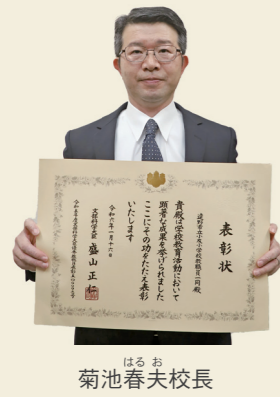 表彰状
遠野市立小友小学校教職員一同殿
貴殿は学校教育活動において
顕著な成果を挙げられました
ここにその功をたたえ表彰
いたします
令和六年一月十六日
文部科学大臣 盛山正仁
はるお
菊池春夫校長